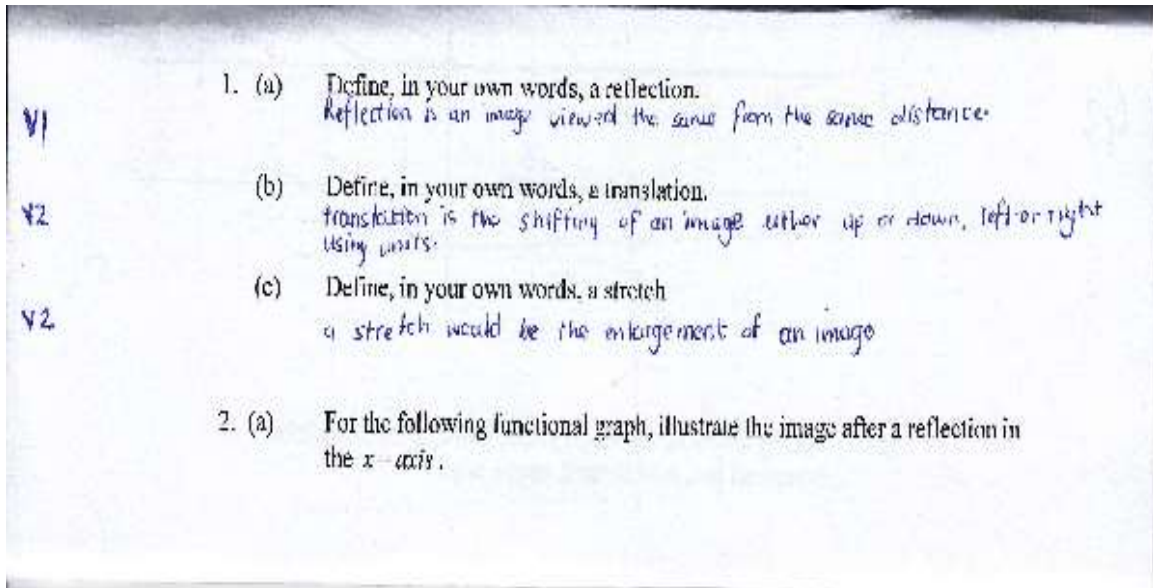 1. (a) Define, in your own words, a reflection.
V1 Reflection is an image viewed the same from the same distance.
(b) Define, in your own words, a translation.
V2 translation is the shifting of an image either up or down, left or right
using units.
(c) Define, in your own words, a stretch
V2 a stretch would be the enlargement of an image
2. (a) For the following functional graph, illustrate the image after a reflection in
the x-axis.